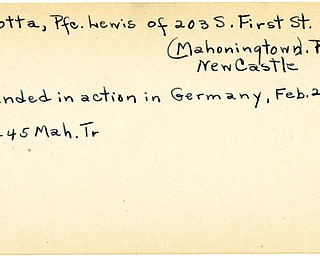 otta, Pfc. Lewis of 203 S. First St.
(Mahoningtown). P
New Castle
nded in action in Germany, Feb. 2
45 Mah. Tr